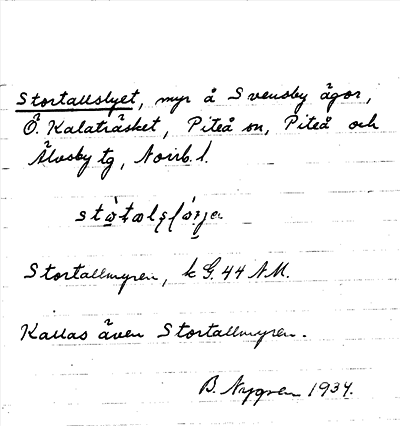 Stortallslyet, myr å Svensby ägor,
Ö. Kalaträsket, Piteå sn, Piteå och
Älvsby tg, Norrb. l.
Stortallmyren, k G. 44 N.M.
Kallas även Stortallmyren.
B. Nygren 1934.